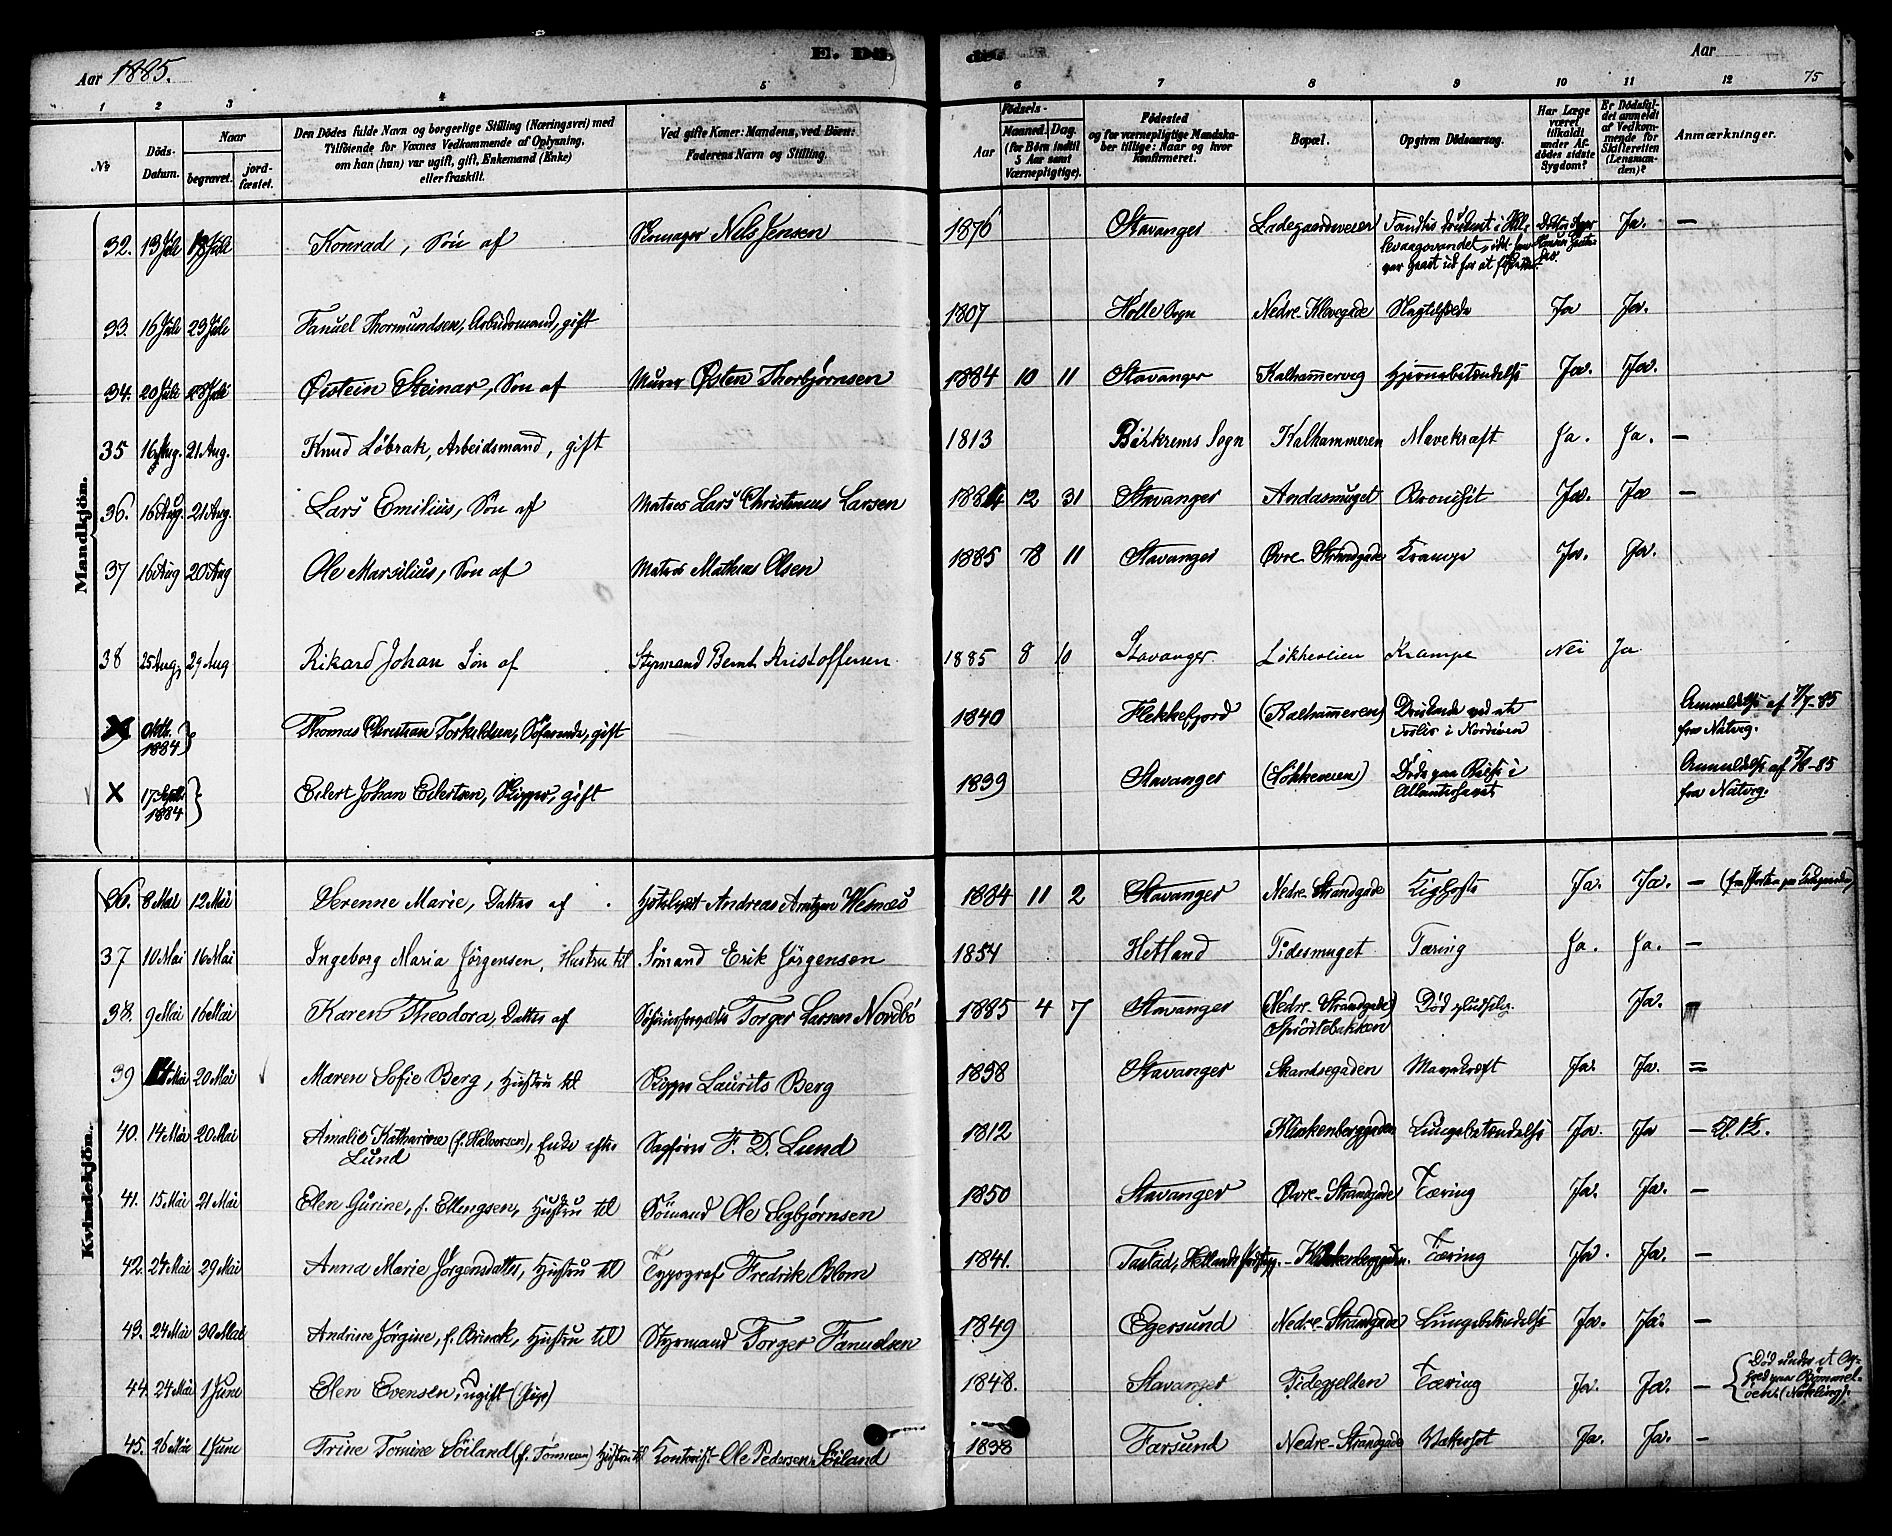 Aar 1885.
E. Dø-
de.
Aar
75
1 2 3 4 5 6 7 8 9 10 11 12
No
Døds-Datum.
Naar
begravet.
jord-fæstet.
Den Dødes fulde Navn og borgerlige Stilling (Næringsvei) med
Tilføiende for Voxnes Vedkommende af Oplysning,
om han (hun) var ugift, gift, Enkemand (Enke)
eller fraskilt.
Ved gifte Koner: Mandens, ved Børn:
Faderens Navn og Stilling.
Fødsels-
Aar
Maaned. Dag.
(for Børn indtil
5 Aar samt
Værnepligtige).
Fødested
og for værnepligtige Mandska-
ber tillige: Naar og hvor
konfirmeret.
Bopæl.
Opgiven Dødsaarsag.
Har Læge
været
tilkaldt
under Af-
dødes sidste
Sygdom?
Er Dødsfal-
det anmeldt
af Vedkom-
mende for
Skifteretten
(Lensman-
den)?
Anmærkninger.
Mandkjön.
32. 13 Juli Juli Konrad, Søn af Skomager Nels Jensen 1876 Stavanger Ladegaardsveien Ja. –
33. 16 Juli 23 Juli Fanuel Thormundsen, Arbeidsmand, gift 1807 Holle Sogn Nedre Kleveg Ja Ja.
34. 20 Juli 23 Juli Øistein Steinar, Søn af Murer Østen Thorbjørnsen 1884 10 11 Stavanger Kalhammerveg Hjernebetændelse Ja. Ja.
35 16 Aug. 21 Aug. Knud Løbrak, Arbeidsmand, gift 1813 Birkrems Sogn Kalhammeren Mavekraft Ja. Ja. –
36. 16 Aug. 21 Aug. Lars Emilius, Søn af Matros Lars Christinius Larsen 1884 12 31 Stavanger Andasmuget Bronchit Ja. Ja –
37 16 Aug 20 Aug Ole Marsilius, Søn af Matros Mathias Olsen 1885 8 11 Stavanger Øvre-Strandgade Krampe Ja. Ja.
38 25 Aug. 29 Aug Rikard Johan Søn af Styrmand Bernh. Kristoffersen 1885 8 10 Stavanger Løkkeveien Krampe Nei Ja
Oktb. 1884 Thomas Christian Torkildsen, Søfarende, gift 1840 Flekkefjord (Kalhammeren) Druknede ved et Forlis i Nordsøen Anmeldelse af 7/7-85 fra Natvig.
X 17 Septb 1884 Eilert Johan Eilertsen, Skipper, gift 1839 Stavanger (Løkkeveien) Døde paa Reise i Atlanterhavet Anmeldelse af 5/8-85 fra Natvig.
Kvindekjön.
36. 8 Mai 12 Mai Marie, Datter af Andreas 1884 11 2 Stavanger Nedre-Strandgade Kighoste Ja. Ja. –
37 10 Mai 16 Mai Ingeborg Maria Jörgensen, Hustru til Sömand Erik Jörgensen 1854 Hetland Tidesmuget Tæring Ja. Ja. –
38. 9 Mai 16 Mai Karen Theodora, Datter af Torger Larsen Nordbö 1885 4 7 Stavanger (Nedre-Strandgade) Spröitebakken Død pludselig Ja. –
39 14 Mai 20 Mai Maren Sofie Berg, Hustru til Skipper Laurits Berg 1838 Stavanger Skandsegaden Mavekræft Ja. Ja. =
40. 14 Mai 20 Mai Amalie Katharine (f. Halvorsen), Enke efter Lund Sagfører F. D. Lund 1812 Klinkenberggaden Lungebetændelse Ja. Ja – Kl. 12.
41. 15 Mai 21 Mai Elen Gurine, f. Ellingsen, Hustru til Sömand Ole Segbjørnsen 1850 Stavanger Øvre-Strandgade Tæring Ja. Ja. –
42. 24 Mai 29 Mai Anna Marie Jørgensdatter, Hustru til Typograf Fredrik Blom 1841. Tastad, Hetlands Klinkenberggaden. Tæring Ja. Ja. –
43. 24 Mai 30 Mai Andrine Jörgine, f. Brinck, Hustru til Styrmand Torger Fanuelsen 1849 Egersund Nedre-Strandgade Lungebetændelse Ja. Ja. –
44. 24 Mai 1 Juni Elen Evensen, ugift (Pige) 1848. Stavanger Tidegjelden Tæring Ja. Ja. – Død under et Ophold paa Bömmelöen.
45. 26 Mai 1 Juni Trine Tomine Söiland (f. ) Hustru til Kontorist Ole Pedersen Söiland 1838 Farsund Nedre-Strandgade Vattersot Ja. Ja. –